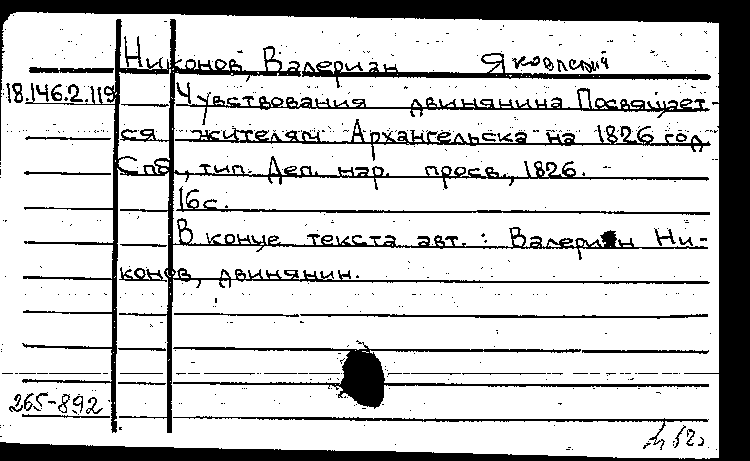 Никонов, Валериан Яковлевич
18.146.2.119 Чувствования двинянина Посвящает-
ся жителям Архангельска на 1826 год
Спб., тип. Деп. нар. просв., 1826.
16с.
В конце текста авт. : Валериан Ни-
конов, двинянин.
265-892